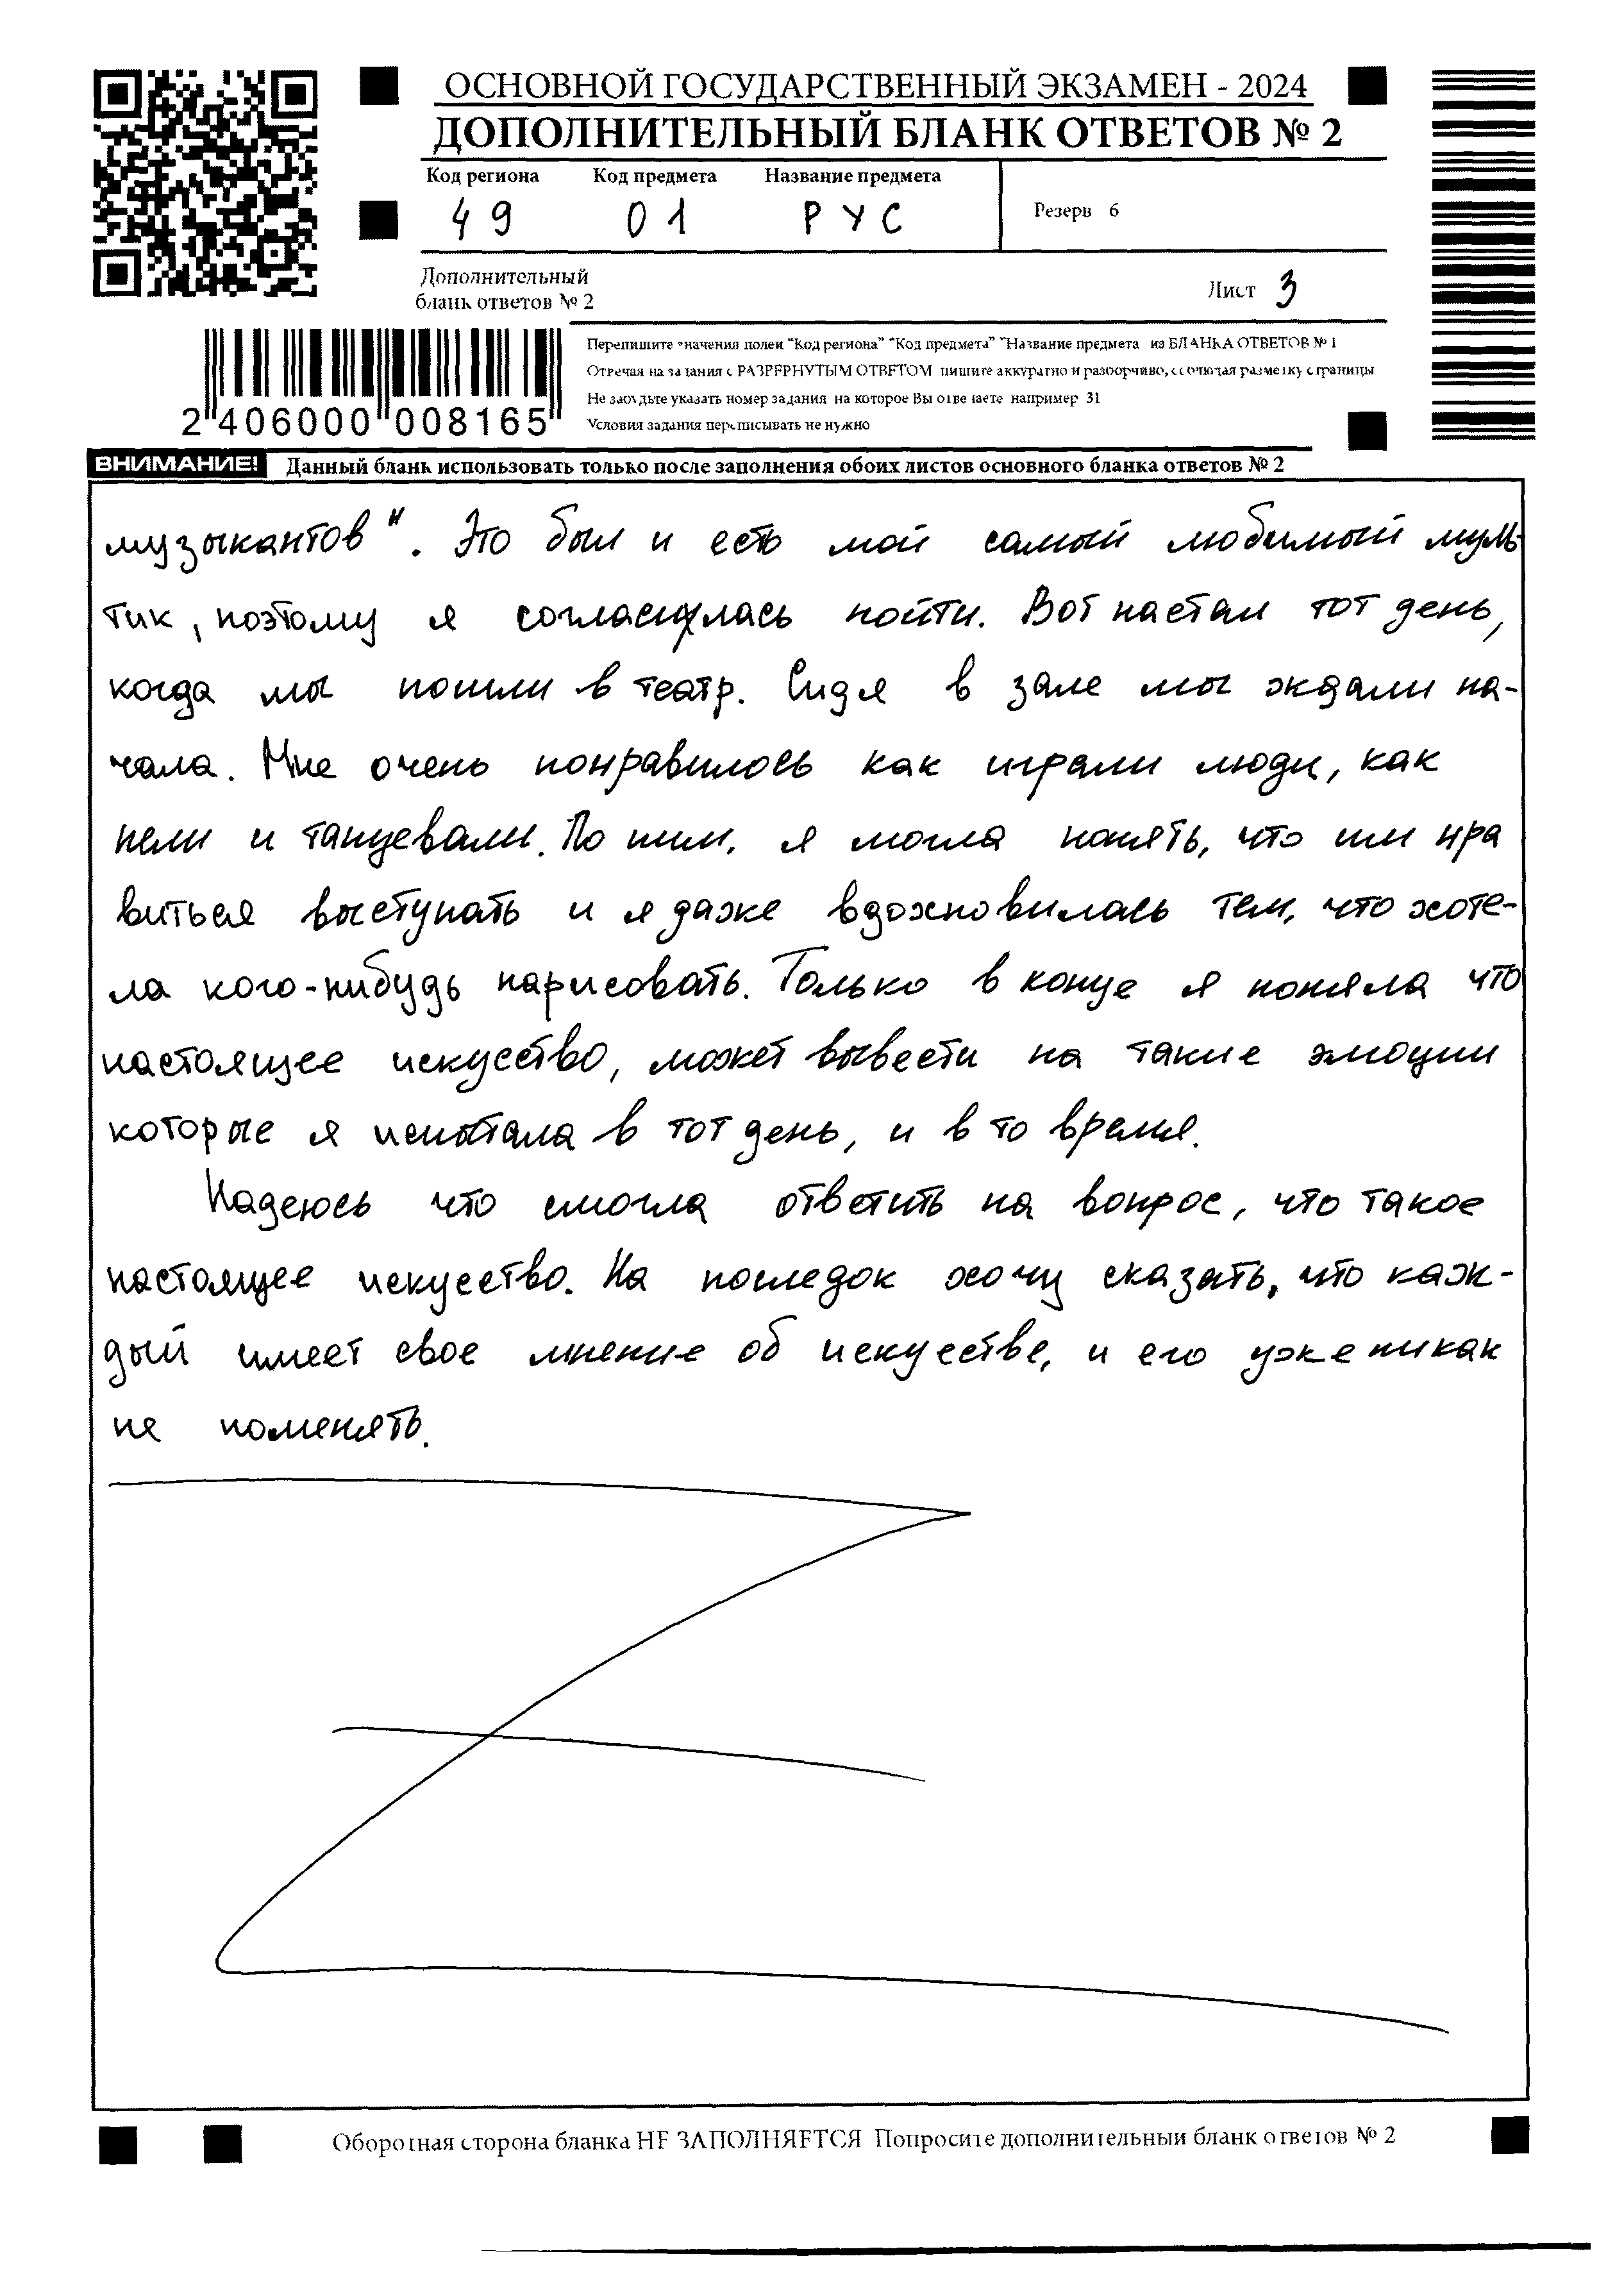 ОСНОВНОЙ ГОСУДАРСТВЕННЫЙ ЭКЗАМЕН - 2024
ДОПОЛНИТЕЛЬНЫЙ БЛАНК ОТВЕТОВ № 2
Код региона Код предмета Название предмета
49 01 РУС
Резерв 6
Дополнительный
бланк ответов № 2
Лист 3
Перепишите значения полей "Код региона" "Код предмета" "Название предмета из БЛАНКА ОТВЕТОВ № 1
Отвечая на задания с РАЗВЕРНУТЫМ ОТВЕТОМ пишите аккуратно и разборчиво, соблюдая разметку страницы
Не забудьте указать номер задания на которое Вы отвечаете например 31
Условия задания переписывать не нужно
2 406000 008165
ВНИМАНИЕ! Данный бланк использовать только после заполнения обоих листов основного бланка ответов № 2
музыкантов". Это был и есть мой самый любимый муль-
тик, поэтому я согласилась пойти. Вот настал тот день,
когда мы пошли в театр. Сидя в зале мы ждали на-
чала. Мне очень понравилось как играли люди, как
пели и танцевали. По ним, я могла понять, что им нра
виться выступать и я даже вдохновилась тем, что хоте-
ла кого-нибудь нарисовать. Только в конце я поняла что
настоящее искуство, может вывести на такие эмоции
которые я испытала в тот день, и в то время.
Надеюсь что смогла ответить на вопрос, что такое
настоящее искуство. На последок хочу сказать, что каж-
дый имеет свое мнение об искустве, и его уже никак
не поменять.
Оборотная сторона бланка НЕ ЗАПОЛНЯЕТСЯ Попросите дополнительный бланк ответов № 2